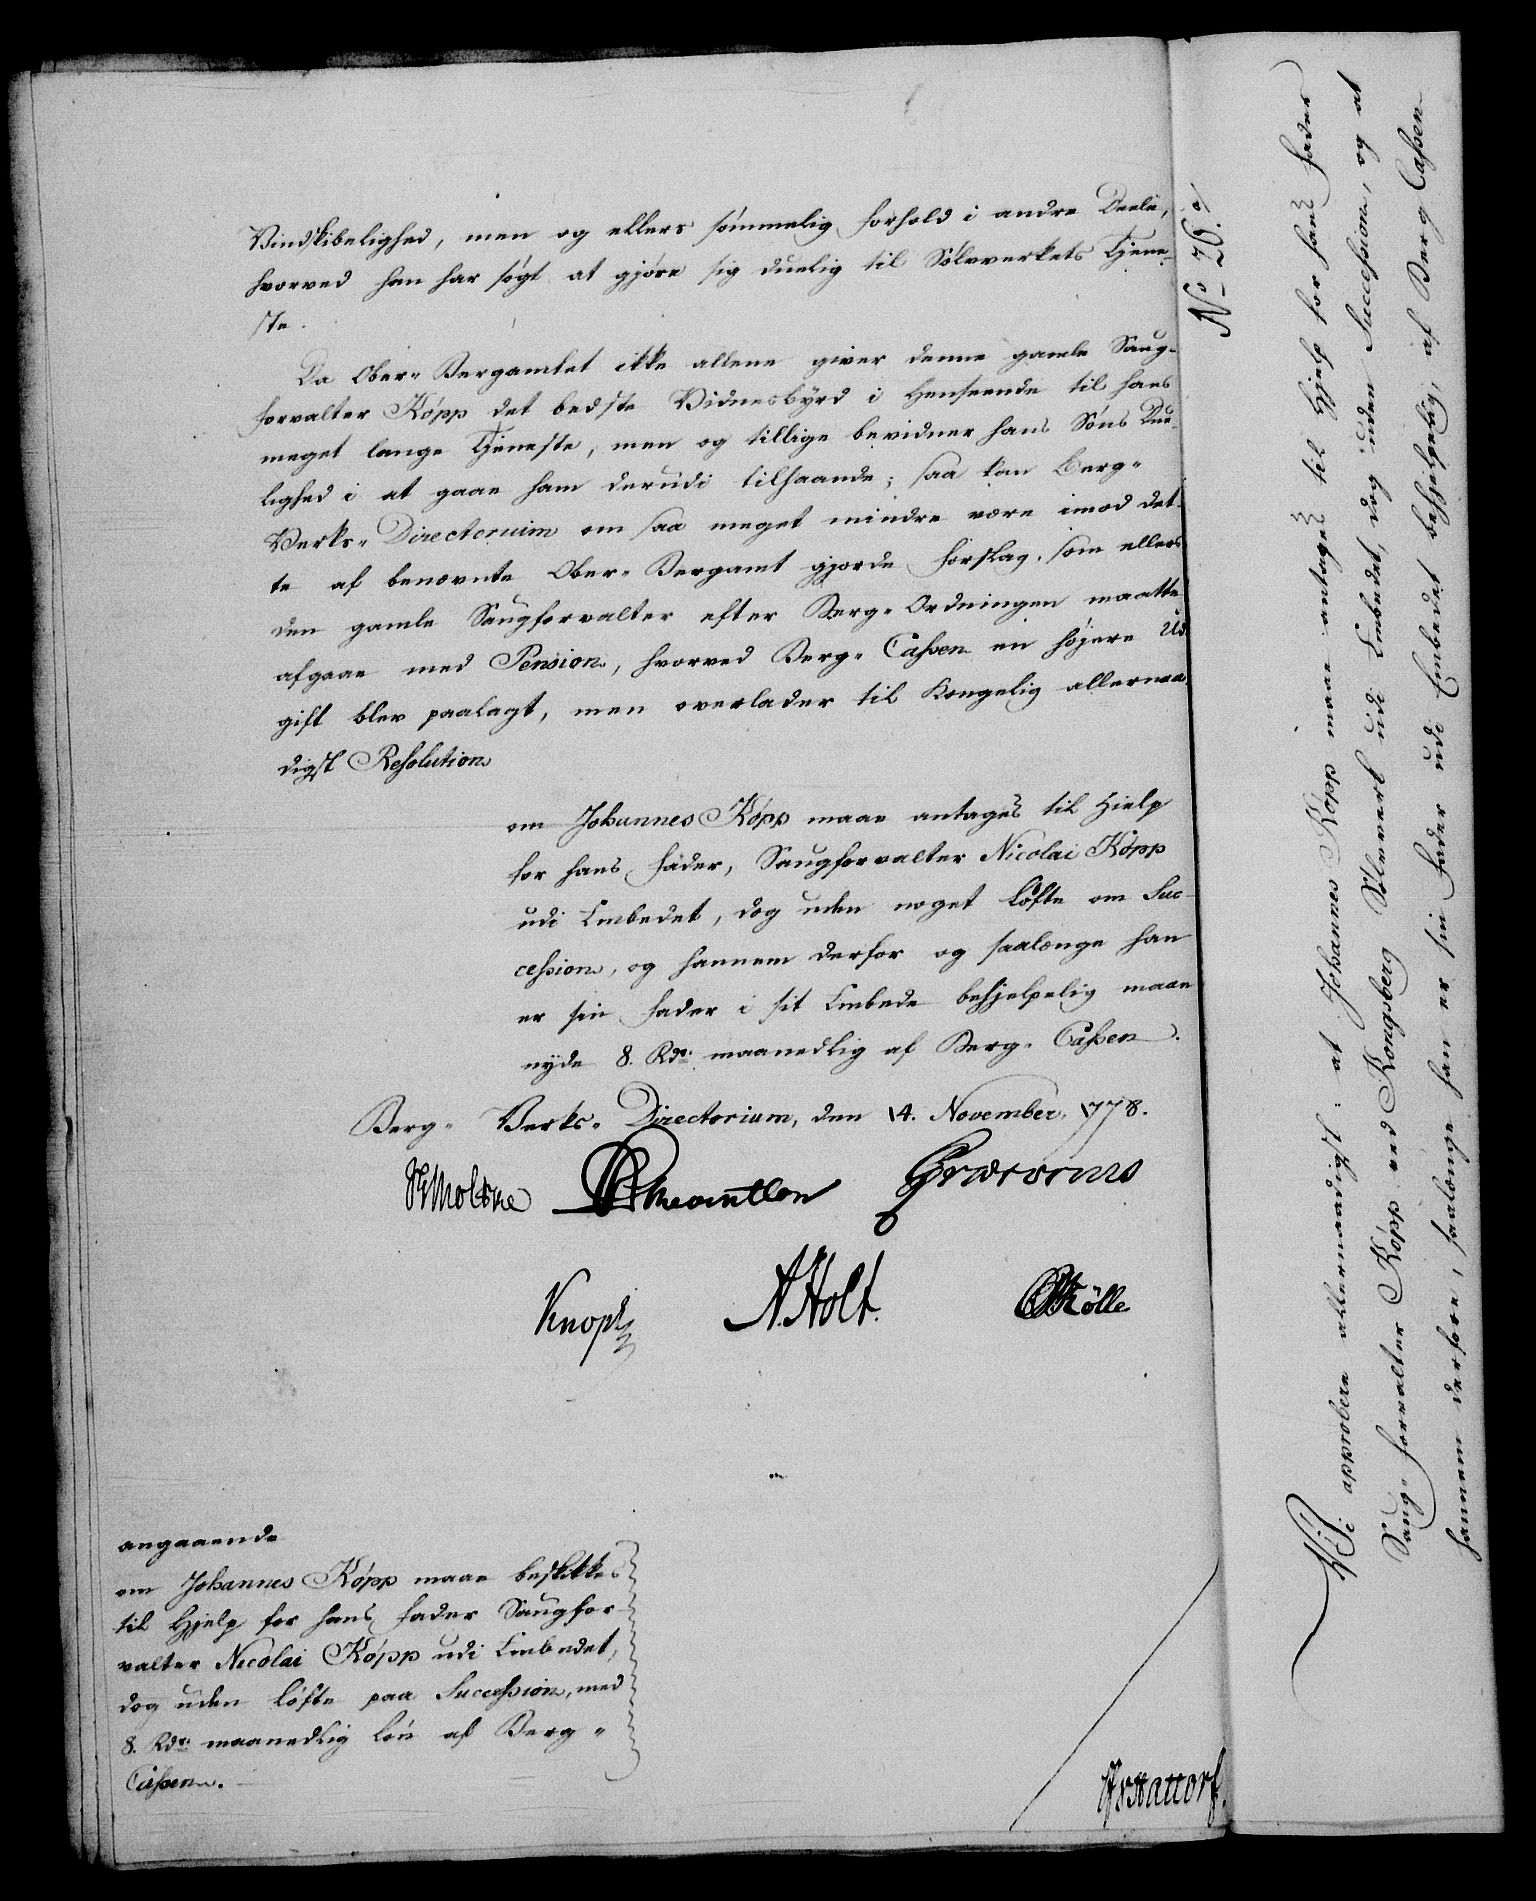 Vindskibelighed, men og ellers sömmelig forhold i andre Deele,
hvorved han har søgt at gjøre sig duelig til Sølvverkets Tjene-
ste.
Da Ober-Bergamtet ikke allene giver denne gamle Saug-
forvalter Köpp det bedste Vidnesbyrd i Henseende til hans
meget lange Tjeneste, men og tillige bevidner hans Söns Due-
lighed i at gaae ham derudi tilhaande; saa kan Berg-
Verks-Directorium om saa meget mindre være imod det-
te af benævnte Ober-Bergamt gjorde Forslag, som ellers
den gamle Saugforvalter efter Berg-Ordningen maatte
afgaae med Pension, hvorved Berg-Cassen en højere Ud-
gift blev paalagt, men overlader til Kongelig allernaa-
digst Resolution
om Johannes Köpp maae antages til Hielp
for hans Fader, Saugforvalter Nicolai Köpp
udi Embedet, dog uden noget Løfte om Suc-
cession, og hannem derfor og saalænge han
er sin Fader i sit Embede behjelpelig maae
nyde 8. Rdr. maanedlig af Berg-Cassen.
Berg-Verks-Directorium, den 14. November 1778.
Moltke Reventlou
Knoph A. Holt. Kölle
angaaende
om Johannes Köpp maae beskikkes
til Hjelp for hans Fader Saugfor-
valter Nicolai Köpp udi Embedet,
dog uden Løfte paa Succession, med
8. Rdr. maanedlig Løn af Berg-
Cassen.
Hattorf.
No 26.
Vi approbere allernaadigst: at Johannes Köpp maae antages til Hjelp for hans Fader
Saug-Forvalter Köpp ved Kongsberg Sølvverk udi Embedet, dog uden Succession, og at
hannem derfore, saalænge han er sin Fader udi Embedet behjelpelig, af Berg Cassen